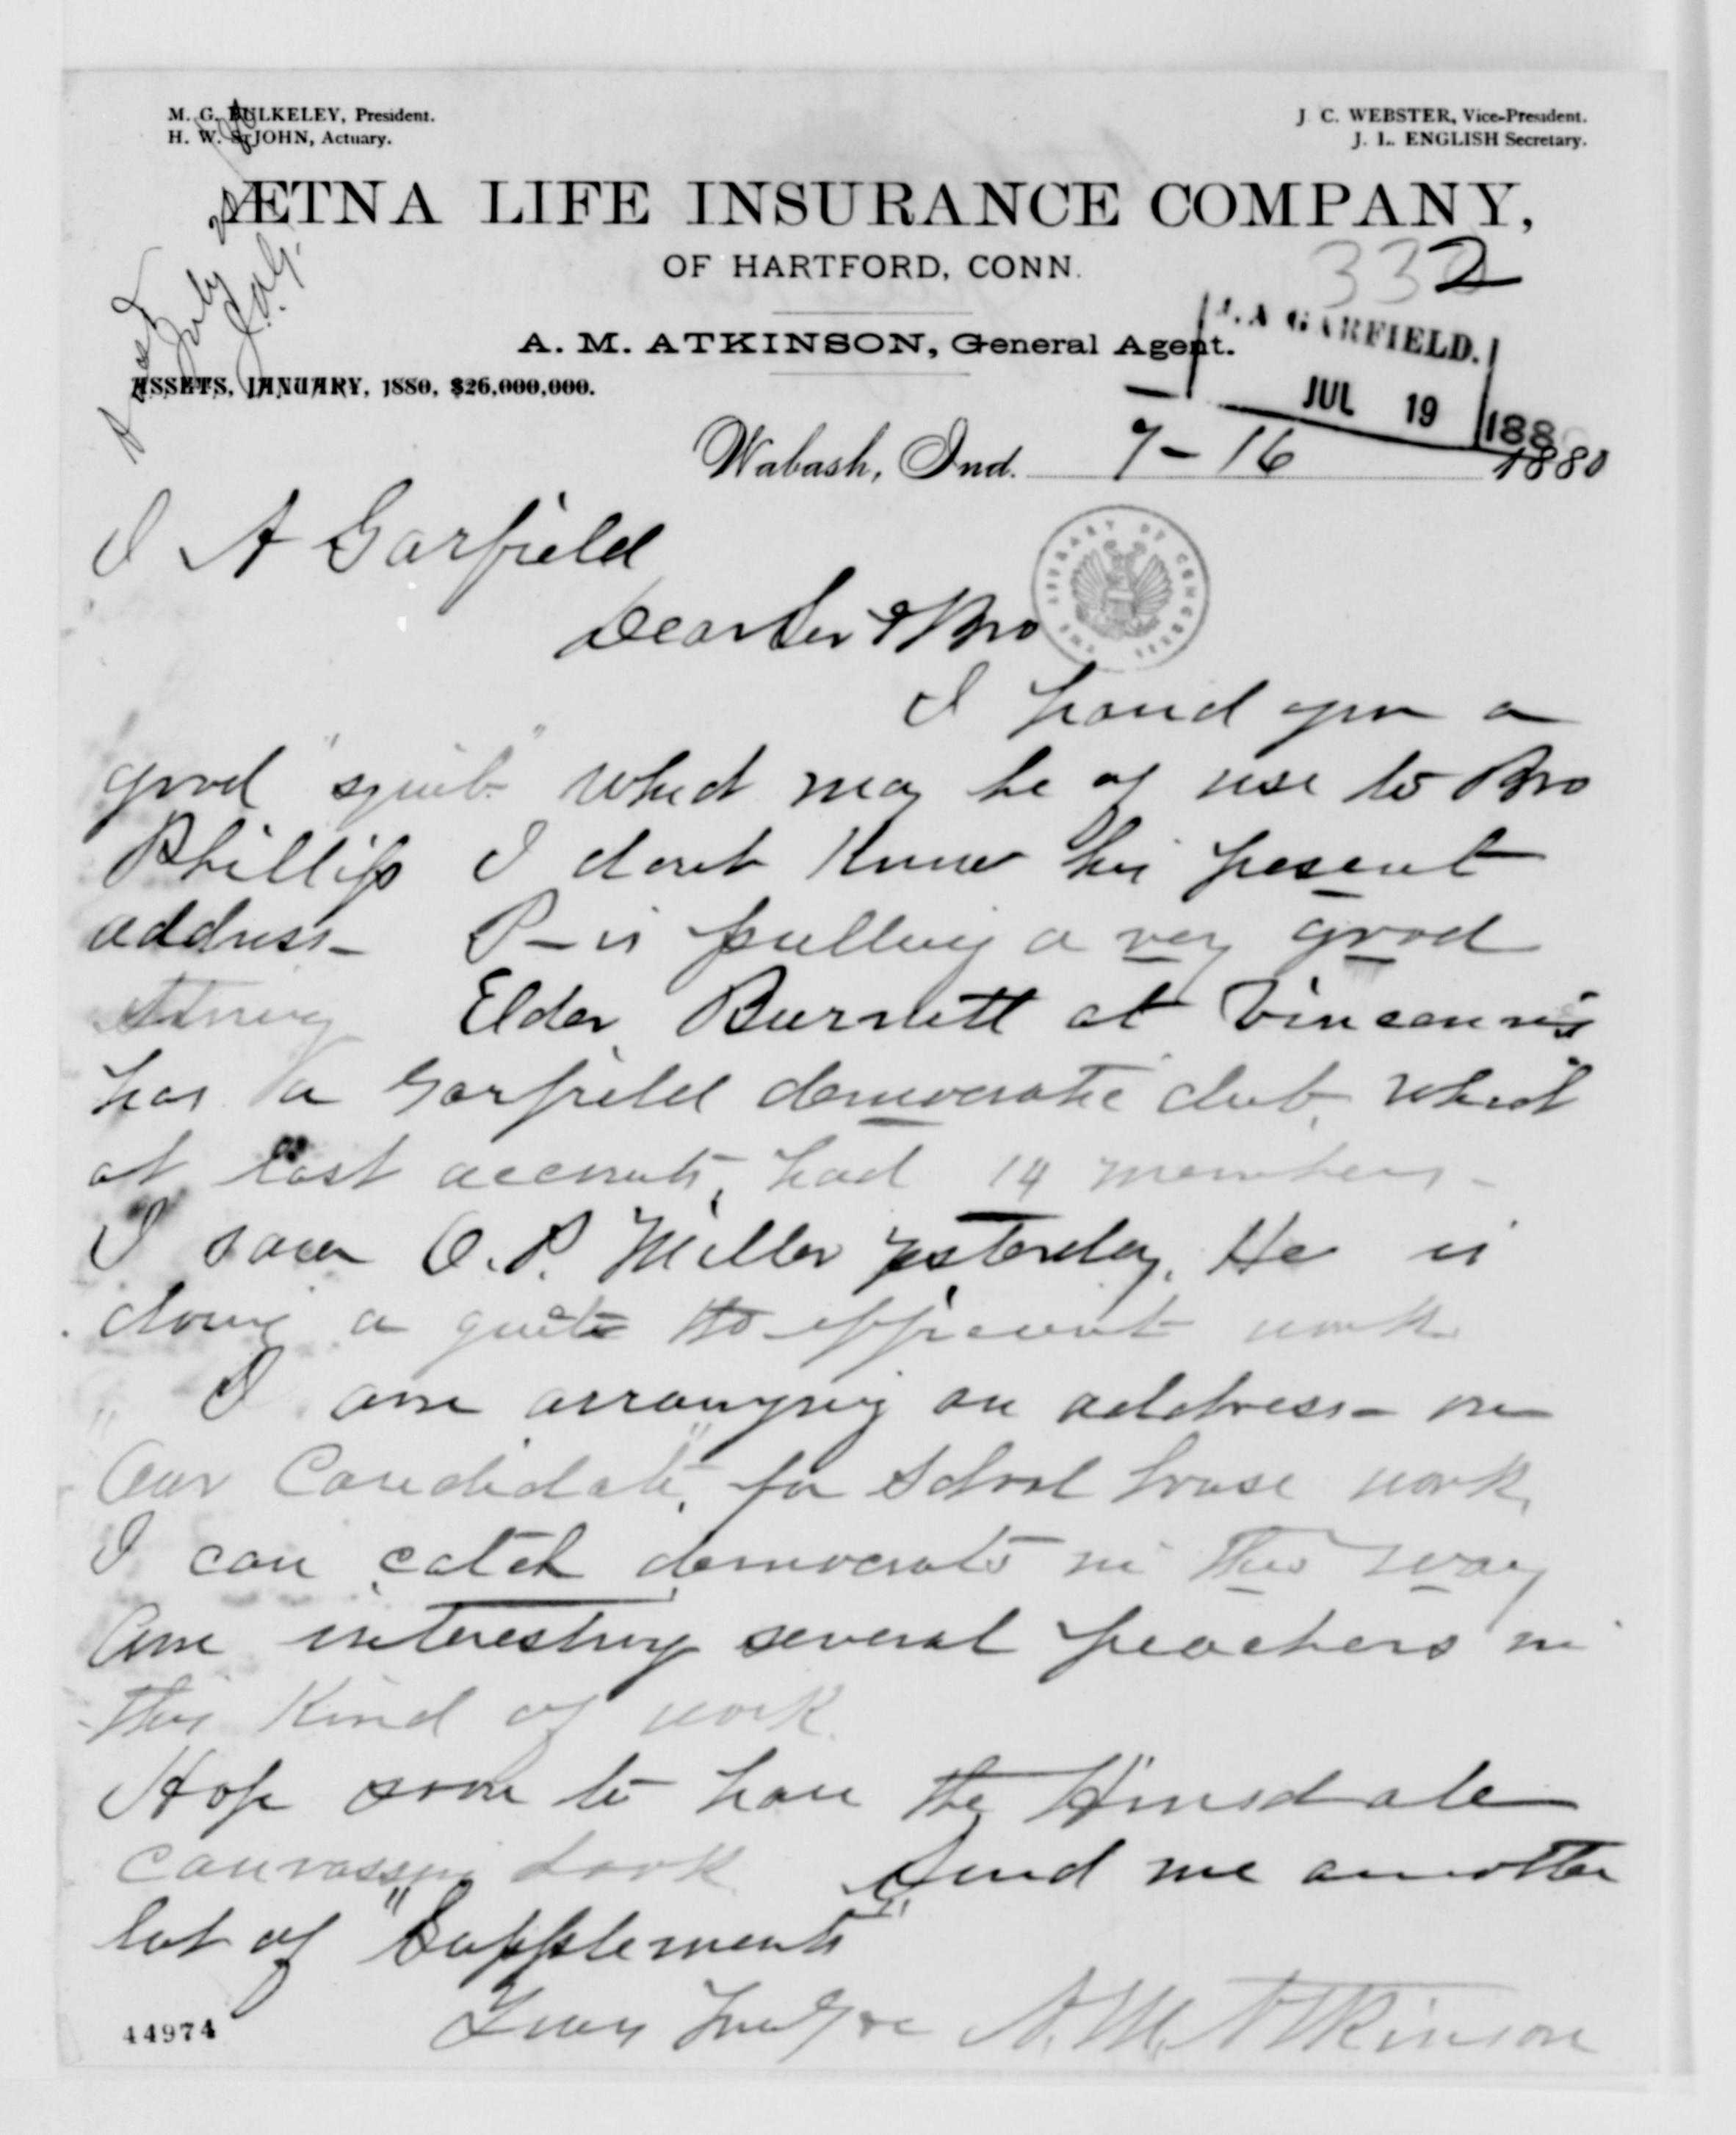 M. G. BULKELEY, President.
H. W. St JOHN, Actuary.
J. C. WEBSTER, Vice-President.
J. L. ENGLISH Secretary.
ÆTNA LIFE INSURANCE COMPANY,
OF HARTFORD, CONN.
332
A. M. ATKINSON, General Agent.
J. A GARFIELD.
JUL 19 1880
ASSETS, JANUARY, 1880, $26,000,000.
July
J.A.G.
Wabash, Ind. 7-16 1880
J A Garfield
Dear Sir & Bro
LIBRARY OF CONGRESS
I hand you a
good "squib" which may be of use to Bro
Phillips I dont know his present
address- P- is pulling a very good
string Elder Burnett at Vincennes
has a Garfield democratic club, which
at last accounts, had 14 members-
I saw O. P. Miller yesterday. He is
doing a quite efficient work
I am arranging an address- on
"Our Candidate", for School house work,
I can catch democrats in this way
Am interesting several preachers in
this kind of work
Hope soon to have the Hinsdale
canvassing book Send me another
lot of "Supplements"
Truly A. M. Atkinson
44974